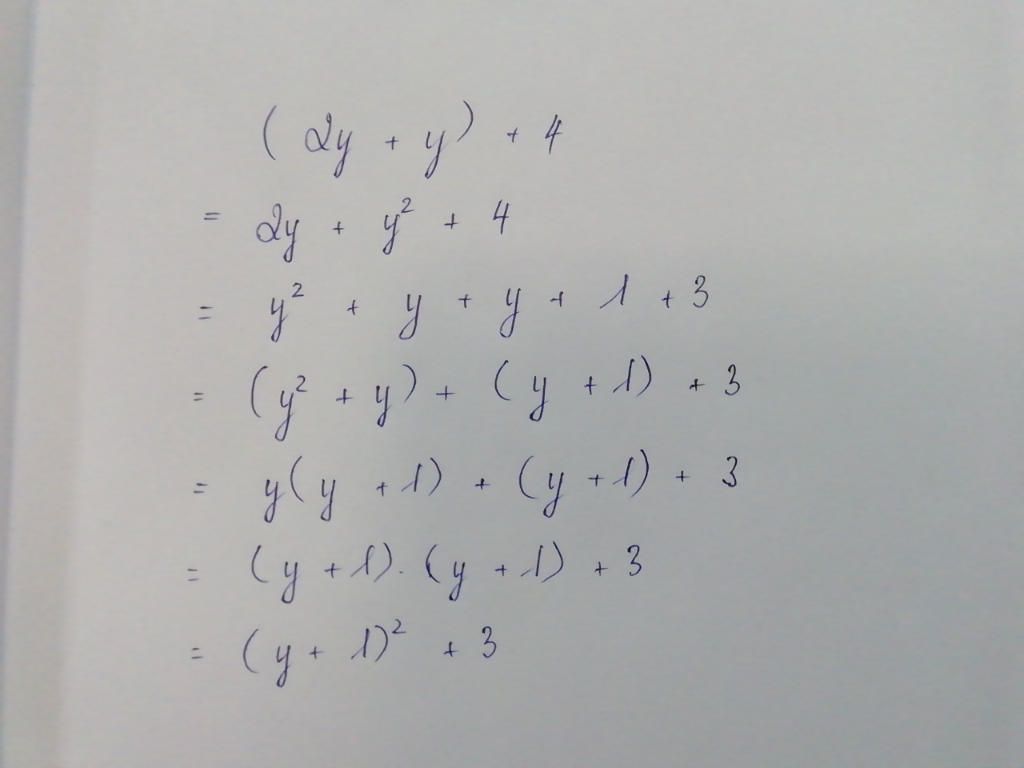 ( 2y + y ) + 4
= 2y + y² + 4
= y² + y + y + 1 + 3
= (y² + y) + (y + 1) + 3
= y(y + 1) + (y + 1) + 3
= (y + 1) . (y + 1) + 3
= (y + 1)² + 3